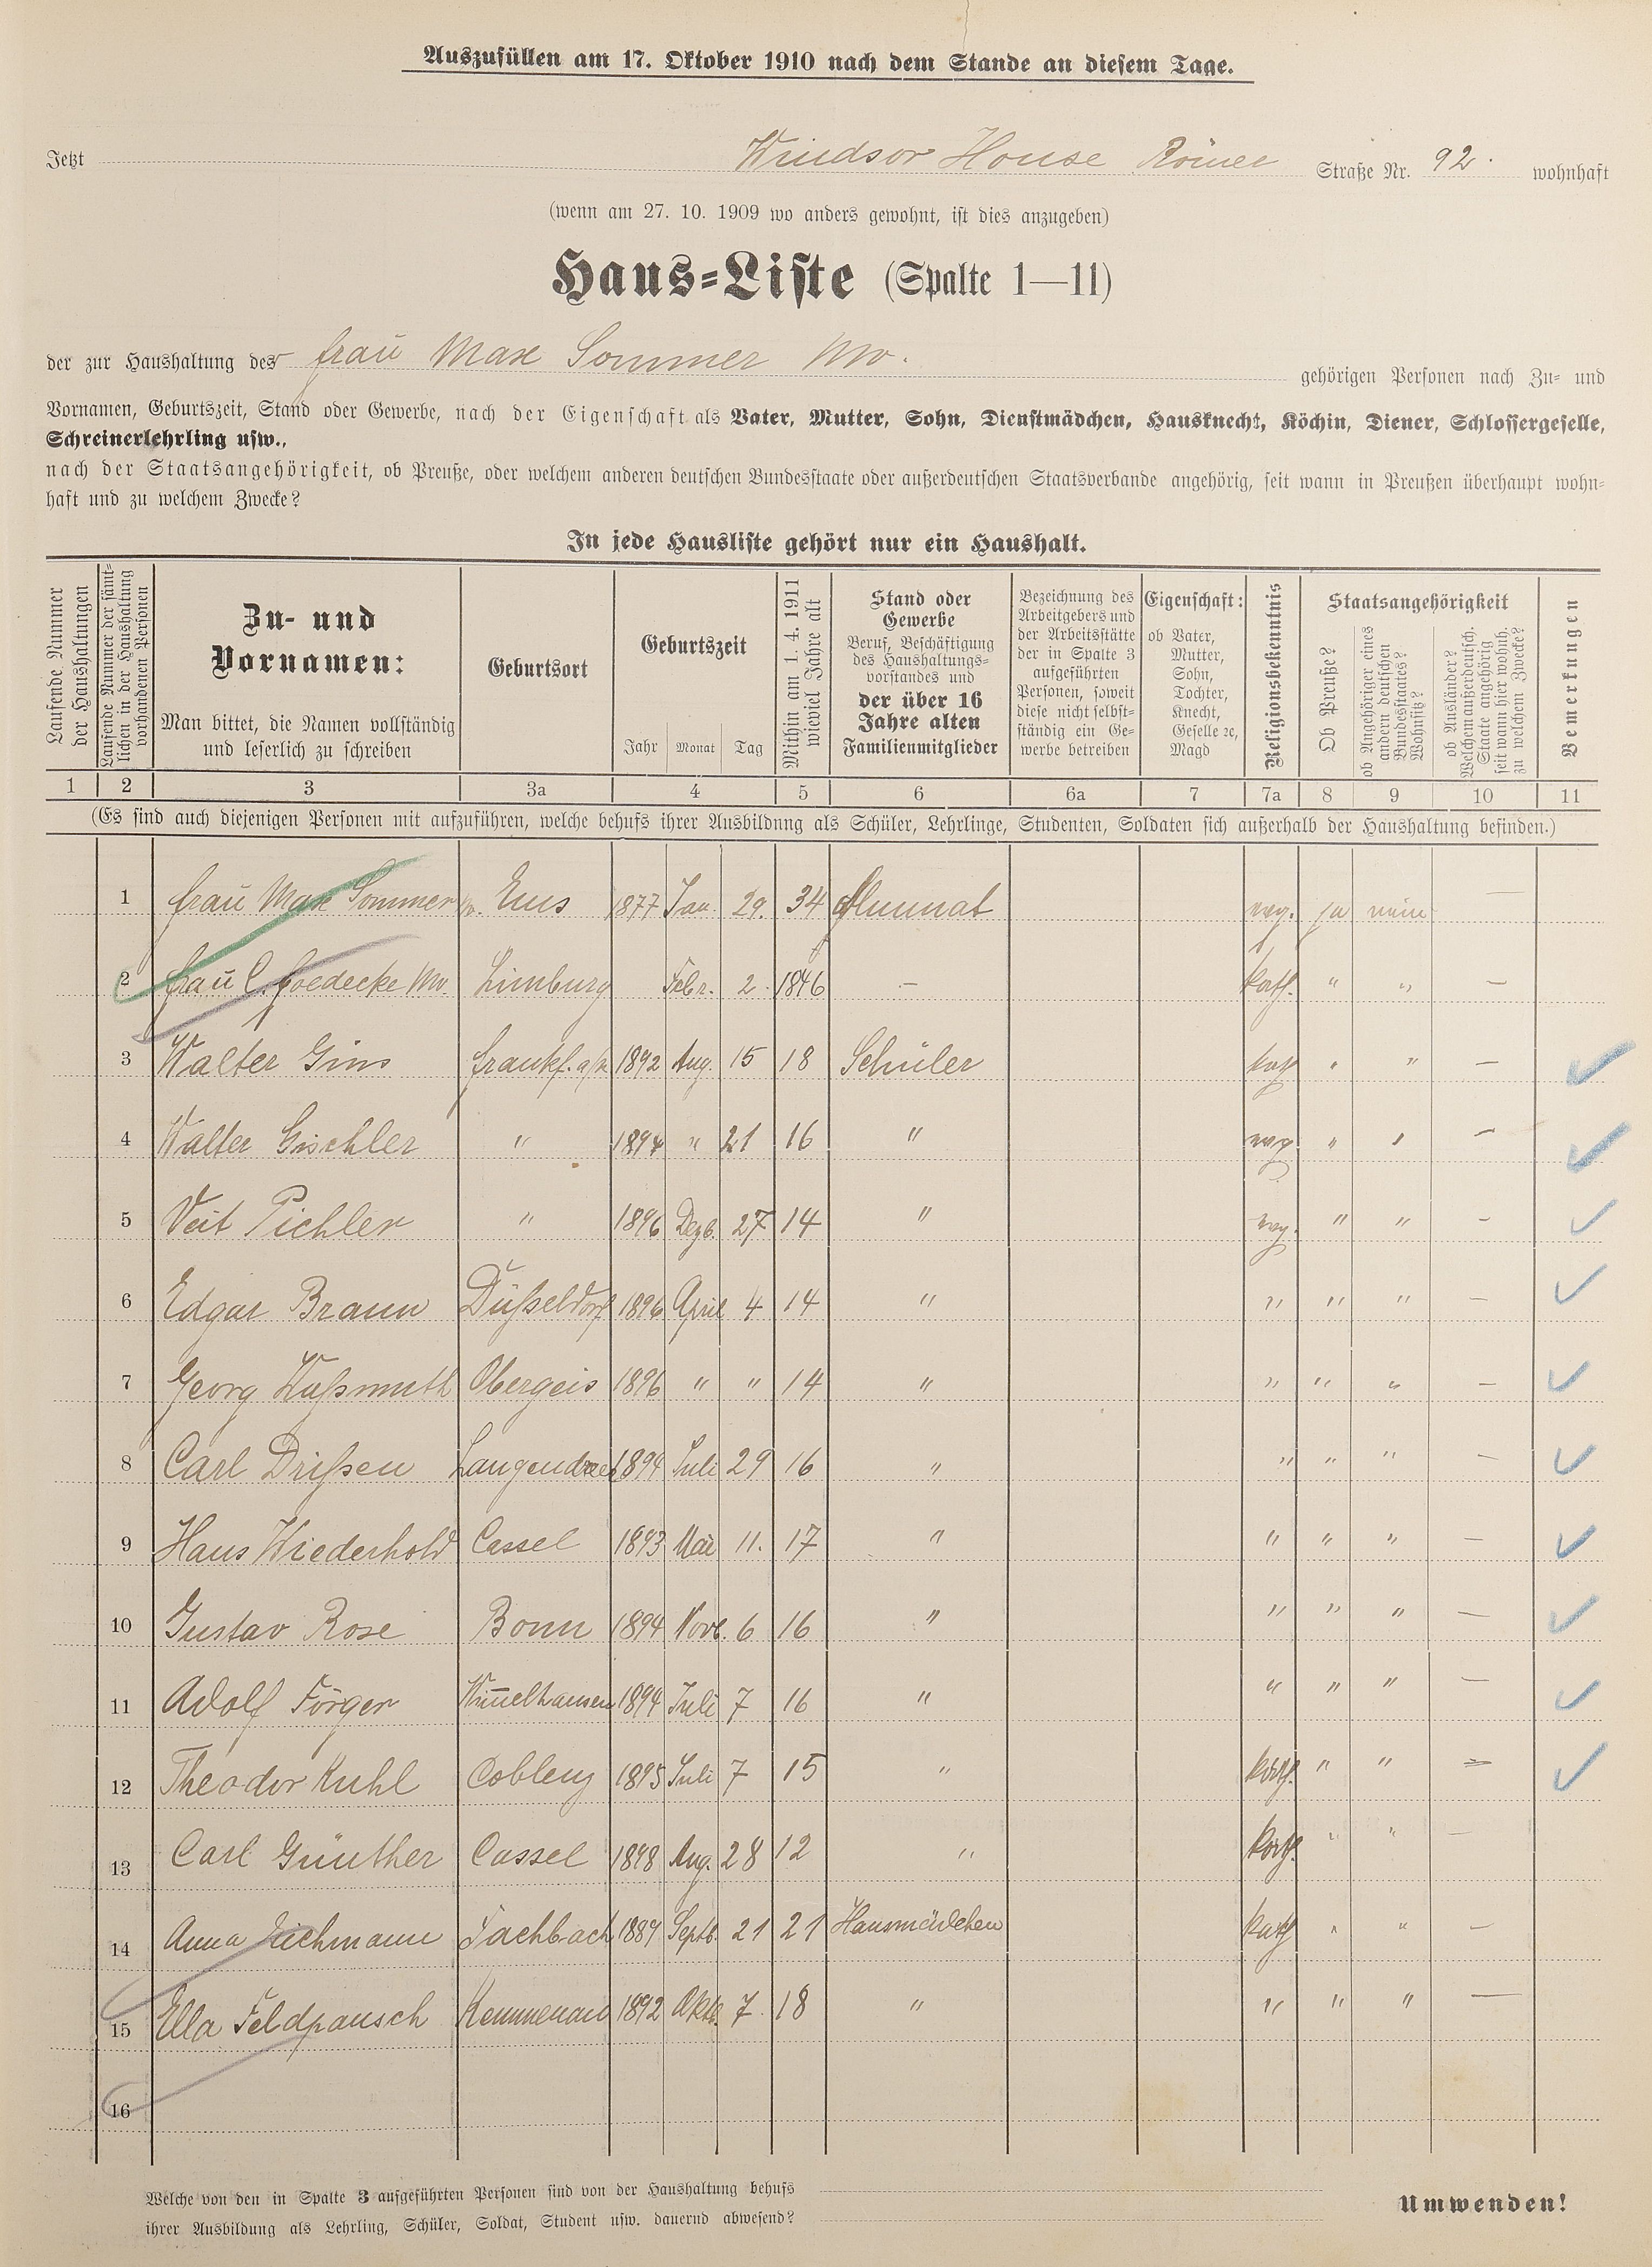 Auszufüllen am 17. Oktober 1910 nach dem Stande an diesem Tage.
Jetzt Windsor House Römer Straße Nr. 92. wohnhaft
(wenn am 27. 10. 1909 wo anders gewohnt, ist dies anzugeben)
Haus-Liste (Spalte 1—11)
der zur Haushaltung des Frau Max Sommer Ww. gehörigen Personen nach Zu- und
Vornamen, Geburtszeit, Stand oder Gewerbe, nach der Eigenschaft als Vater, Mutter, Sohn, Dienstmädchen, Hausknecht, Köchin, Diener, Schlossergeselle,
Schreinerlehrling usw.,
nach der Staatsangehörigkeit, ob Preuße, oder welchem anderen deutschen Bundesstaate oder außerdeutschen Staatsverbande angehörig, seit wann in Preußen überhaupt wohn-
haft und zu welchem Zwecke?
In jede Hausliste gehört nur ein Haushalt.
Laufende Nummer
der Haushaltungen
Laufende Nummer der sämt-
lichen in der Haushaltung
vorhandenen Personen
Zu- und
Vornamen:
Man bittet, die Namen vollständig
und leserlich zu schreiben
Geburtsort
Geburtszeit
Jahr Monat Tag
Mithin am 1. 4. 1911
wieviel Jahre alt
Stand oder
Gewerbe
Beruf, Beschäftigung
des Haushaltungs-
vorstandes und
der über 16
Jahre alten
Familienmitglieder
Bezeichnung des
Arbeitgebers und
der Arbeitsstätte
der in Spalte 3
aufgeführten
Personen, soweit
diese nicht selbst-
ständig ein Ge-
werbe betreiben
Eigenschaft:
ob Vater,
Mutter,
Sohn,
Tochter,
Knecht,
Geselle ꝛc,
Magd
Religionsbekenntnis
Staatsangehörigkeit
Ob Preuße?
ob Angehöriger eines
andern deutschen
Bundesstaates?
Wohnsitz?
ob Ausländer?
Welchem außerdeutsch.
Staate angehörig
seit wann hier wohnh.
zu welchem Zwecke?
Bemerkungen
1 2 3 3a 4 5 6 6a 7 7a 8 9 10 11
(Es sind auch diejenigen Personen mit aufzuführen, welche behufs ihrer Ausbildnng als Schüler, Lehrlinge, Studenten, Soldaten sich außerhalb der Haushaltung befinden.)
1 Frau Max Sommer Ww. Ems 1877 Jan. 29. 34 Alumnat evg. ja nein —
2 Frau C. Goedecke Ww. Limburg Febr. 2. 1846 — kath. " " —
3 Walter Gins Frankf. a/M 1892 Aug. 15 18 Schüler kath " " —
4 Walter Gischler " 1894 " 21 16 " evg. " " —
5 Veit Pichler " 1896 Dezb. 27 14 " evg. " " —
6 Edgar Braun Düßeldorf 1896 April 4 14 " " " " —
7 Georg Wußmuth Obergeis 1896 " " 14 " " " " —
8 Carl Drißen Langendreer 1894 Juli 29 16 " " " " —
9 Hans Wiederhold Cassel 1893 Mai 11. 17 " " " " —
10 Gustav Rose Bonn 1894 Novb. 6 16 " " " " —
11 Adolf Förger 1894 Juli 7 16 " " " " —
12 Theodor Kuhl Coblenz 1895 Juli 7 15 " kath. " " —
13 Carl Günther Cassel 1898 Aug. 28 12 " kath. " " —
14 Anna Eichmann Fachbach 1889 Septb. 21 21 Hausmädchen kath " " —
15 Ella Feldpausch Kemmenau 1892 Oktb. 7. 18 " " " " —
16
Welche von den in Spalte 3 aufgeführten Personen sind von der Haushaltung behufs
ihrer Ausbildung als Lehrling, Schüler, Soldat, Student usw. dauernd abwesend?
Umwenden!